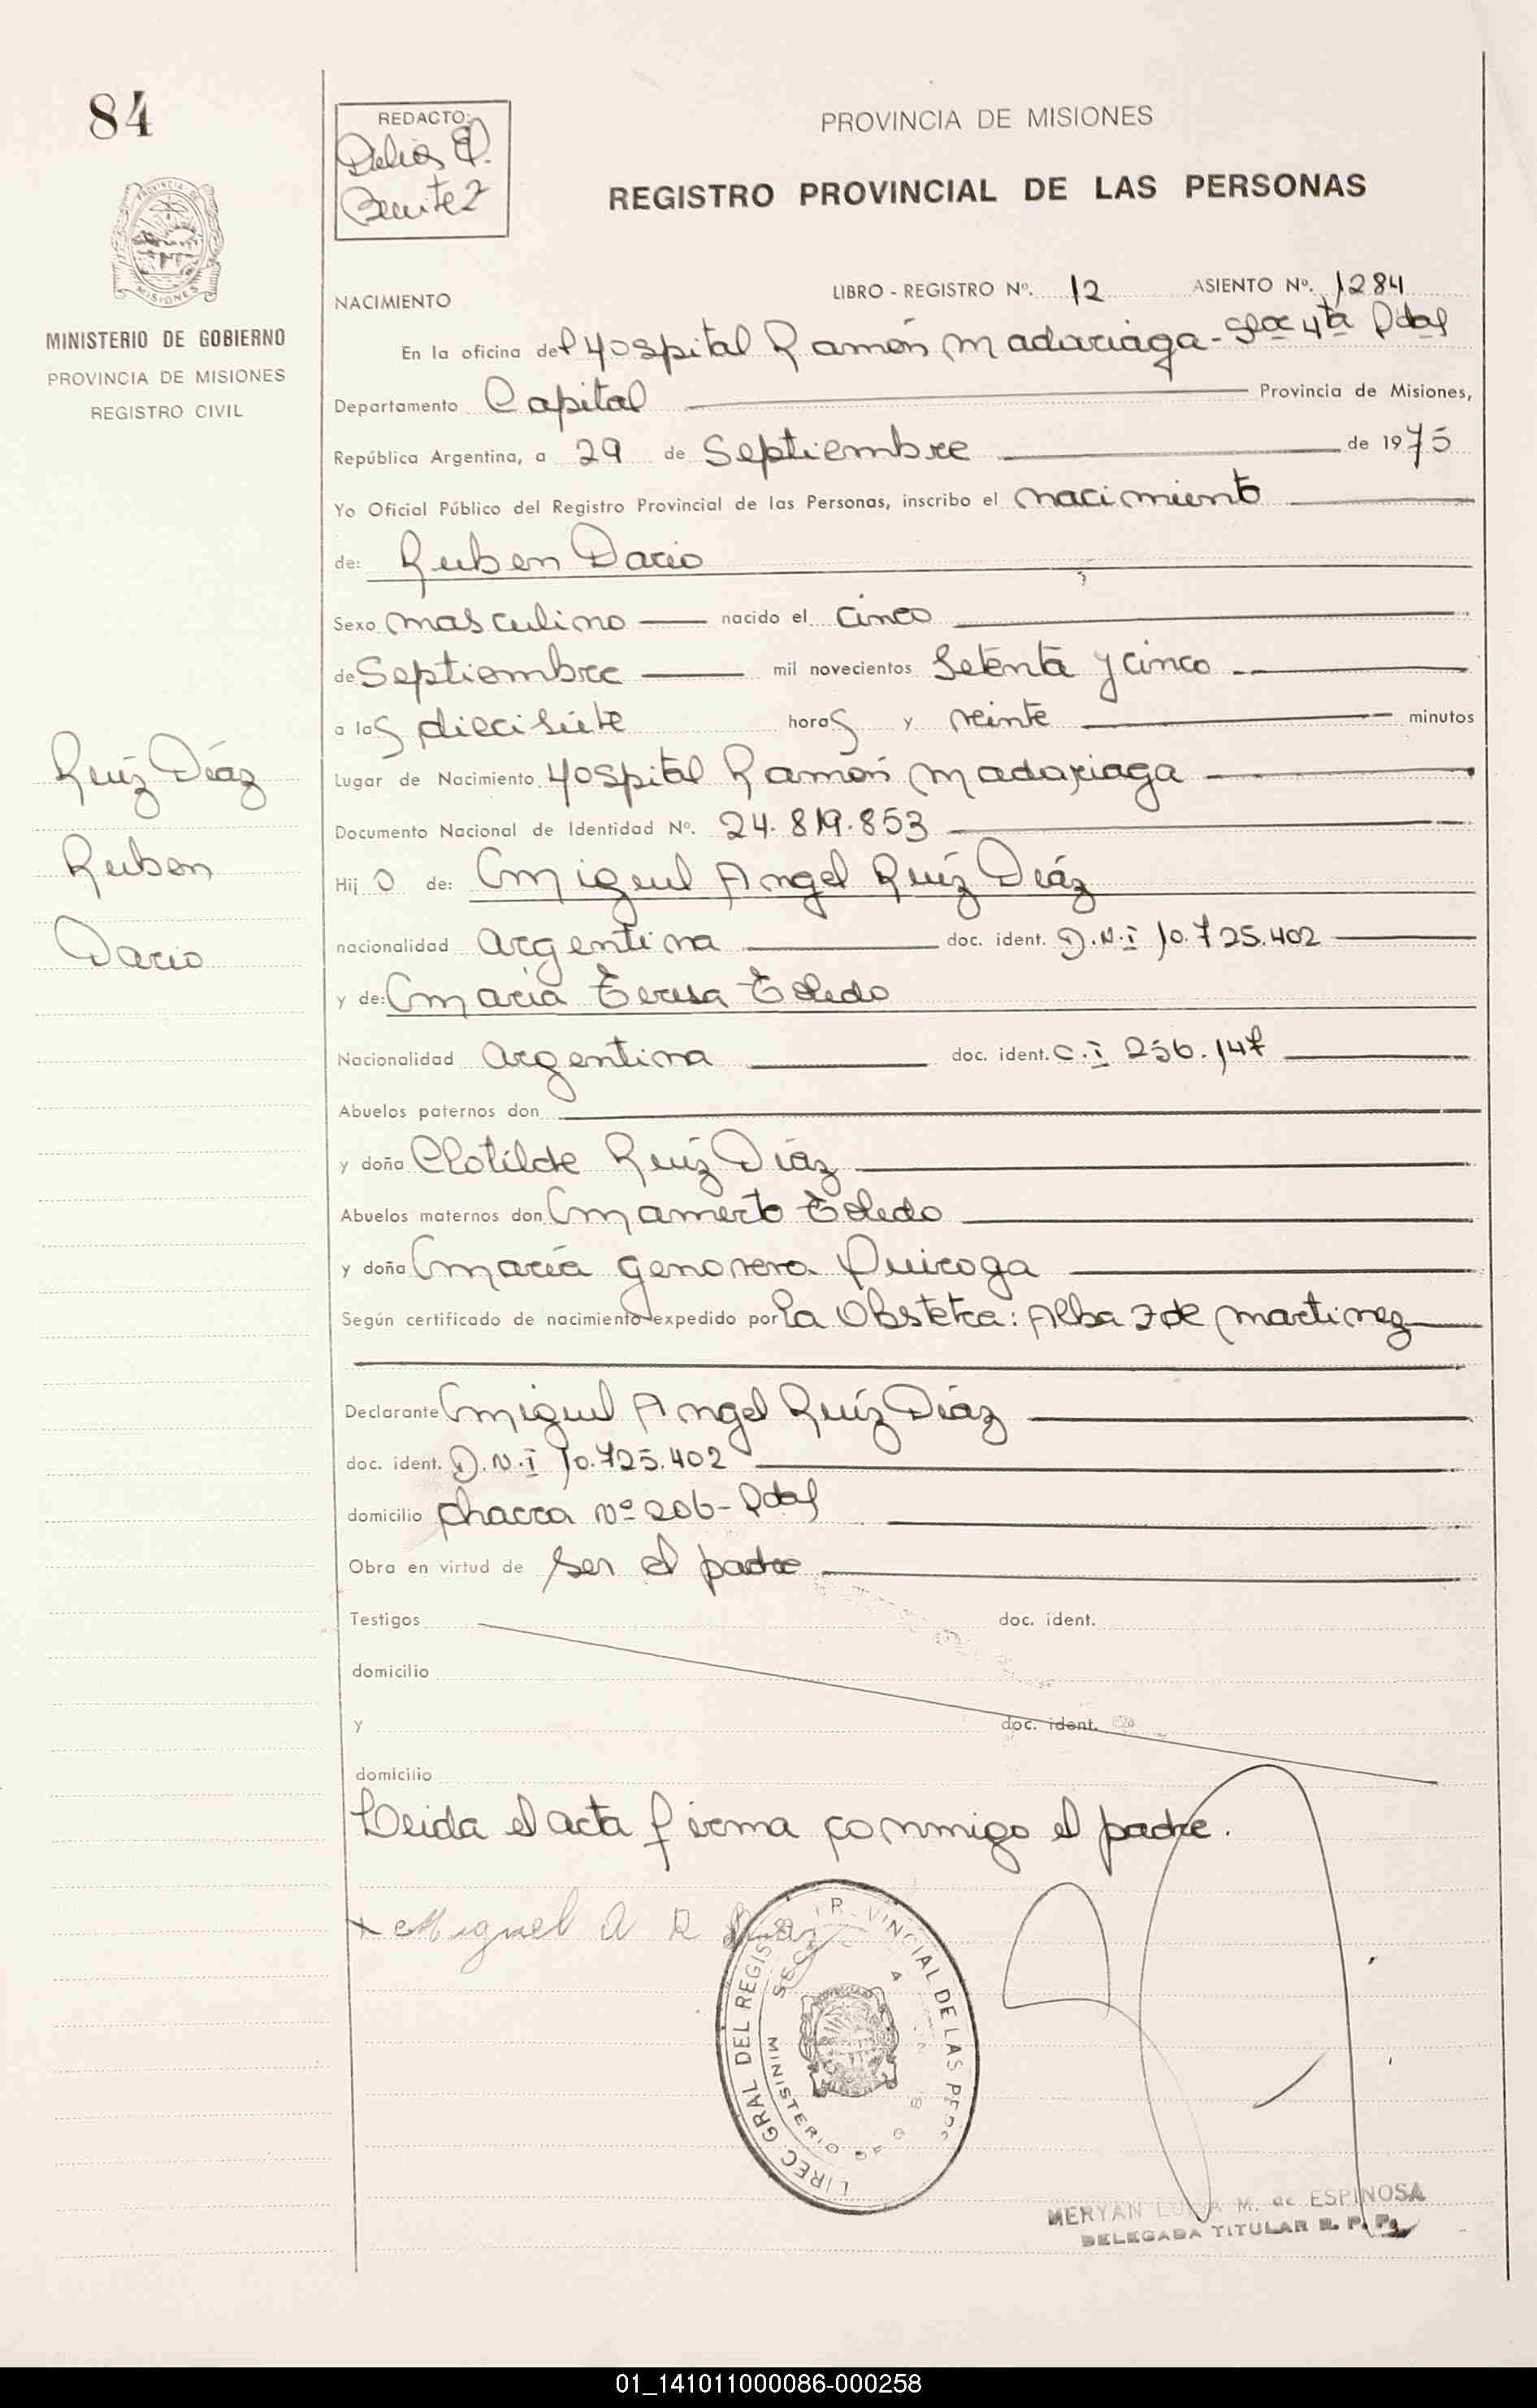 84
REDACTO:
Delia E.
Benitez
PROVINCIA DE MISIONES
REGISTRO PROVINCIAL DE LAS PERSONAS
MINISTERIO DE GOBIERNO
PROVINCIA DE MISIONES
REGISTRO CIVIL
NACIMIENTO
LIBRO - REGISTRO Nº. 12 ASIENTO Nº. 1284
En la oficina del Hospital Ramón Madariaga - Secc 4ta Pdas
Departamento Capital Provincia de Misiones,
República Argentina, a 29 de Septiembre de 1975
Yo Oficial Público del Registro Provincial de las Personas, inscribo el nacimiento
de: Ruben Dario
Sexo masculino nacido el cinco
de Septiembre mil novecientos Setenta y cinco
a las diecisiete horas y veinte minutos
Ruíz Díaz
Ruben
Dario
Lugar de Nacimiento Hospital Ramón Madariaga
Documento Nacional de Identidad Nº. 24.819.853
Hijo de: Migeul Angel Ruíz Díaz
nacionalidad argentina doc. ident. D.N.I 10.725.402
y de: María Teresa Toledo
Nacionalidad argentina doc. ident. C.I 256.147
Abuelos paternos don
y doña Clotilde Ruíz Díaz
Abuelos maternos don Mamerto Toledo
y doña María Genoveva Quiroga
Según certificado de nacimiento expedido por la Obstetra: Alba Z de Martinez
Declarante Miguel Angel Ruíz Díaz
doc. ident. D.N.I 10.725.402
domicilio chacra Nº 206 - Pdas
Obra en virtud de ser el padre
Testigos doc. ident.
domicilio
y doc. ident.
domicilio
Leida el acta firma conmigo el padre.
x Miguel A R Diaz
DIREC GRAL DEL REGIS PROVINCIAL DE LAS PERS
MINISTERIO DE GOB
MERYAN LUISA M. de ESPINOSA
DELEGADA TITULAR R. P. P.
01_141011000086-000258